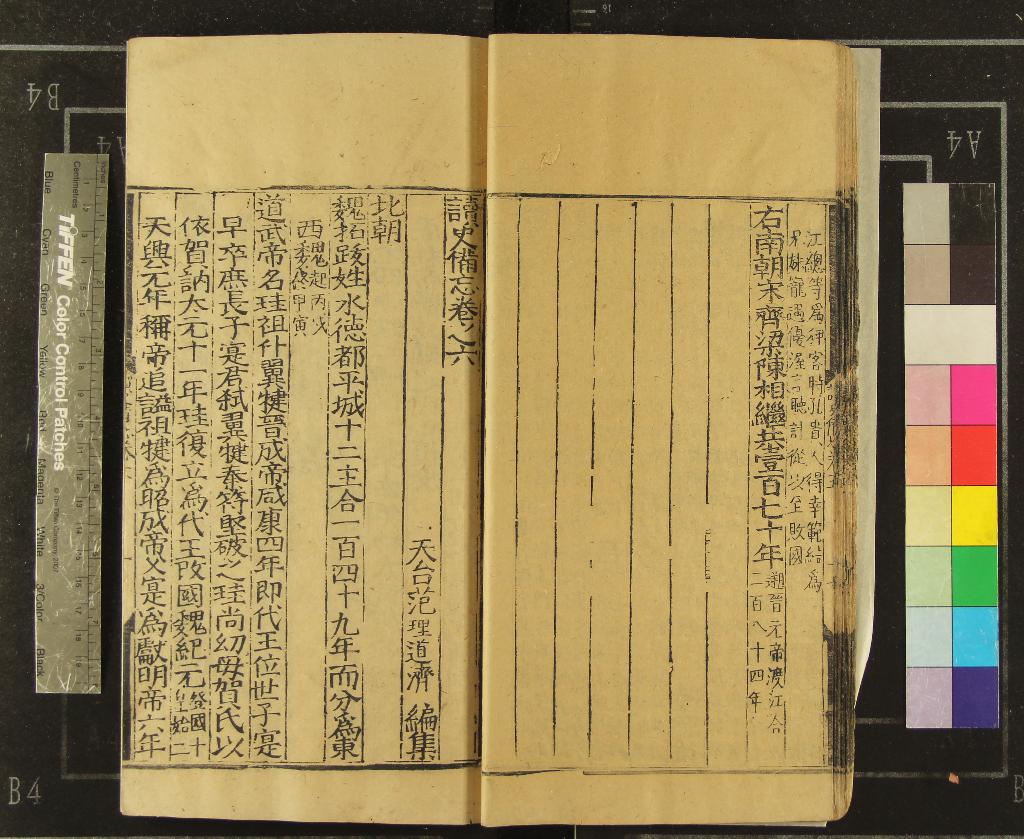 江總等為狎客時孔貴人得幸範結為
兄妹寵遇優渥言聽計從以至敗國
右南朝宋齊梁陳相繼共壹百七十年遡晉元帝渡江合
二百八十四年
讀史備忘卷之六
天台范理道濟編集
北朝
魏拓跋姓水德都平城十二主合一百四十九年而分為東
西魏起丙戌
西委終甲寅
道武帝名珪祖什翼犍晉成帝咸康四年即代王位世子寔
早卒庶長子寔君弒翼犍秦符堅破之珪尚幼母賀氏以
依賀訥太元十一年珪復立為代王改國魏紀元登國十
皇始二
天興元年稱帝追謚祖犍為昭成帝父寔為獻明帝六年
TIFFEN Color Control Patches
Centimetres
Blue
Cyan
Green
Yellow
Red
Magenta
White
3/Color
Black
B4
A4
A4
B4